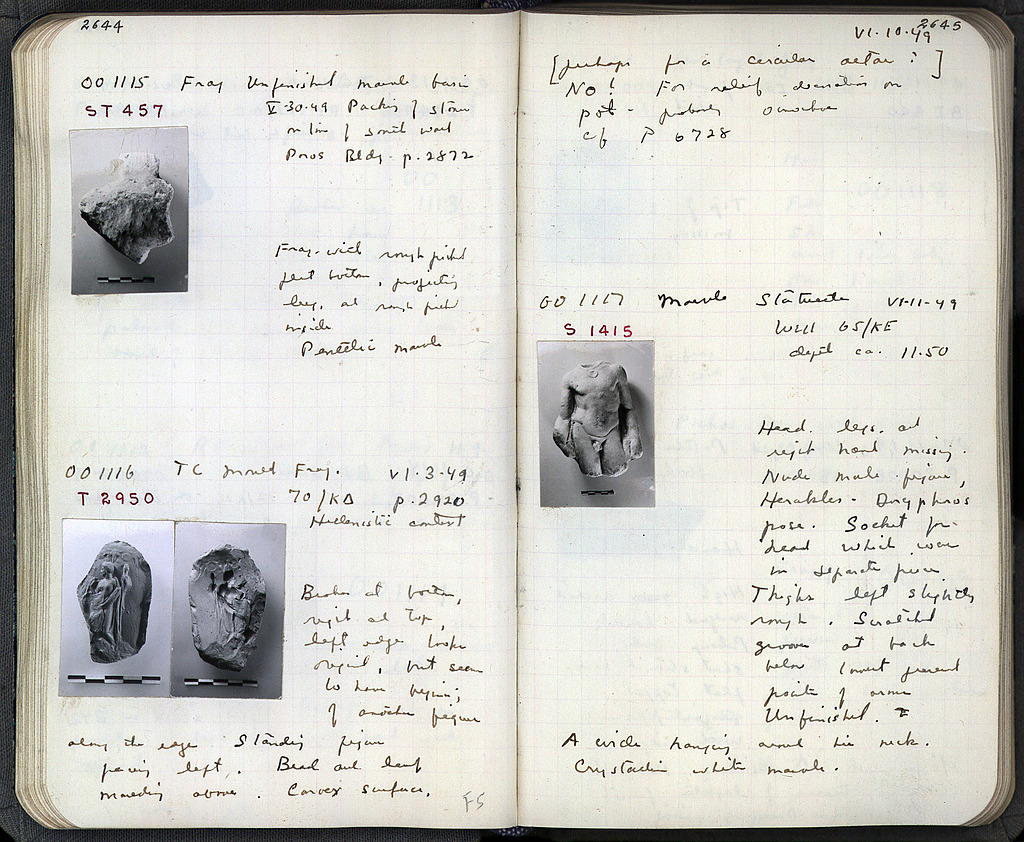 2644
OO 1115 Frag Unfinished marble basin
ST 457
V-30-49 Packing of stone
on line of south wall
Poros Bldg. p. 2872
Frag. with rough picked
flat bottom, projecting
leg, at rough picked
inside
Pentelic marble
OO 1116 TC mould Frag. VI-3-49
T 2950
70/KΔ p. 2920
Hellenistic context
Broken at bottom,
right at top,
left edge looks
original, but seems
to have beginning
of another figure
along the edge Standing figure
facing left. Bead and leaf
moulding above. Convex surface.
F5
2645
VI-10-49
[perhaps for a circular altar?]
No! For relief decoration on
pot - probably oinochoe
cf P 6728
OO 1117 Marble Statuette VI-11-49
S 1415
Well OS/KE
depth ca. 11.50
Head, legs, at
right hand missing.
Nude male figure,
Herakles - Doryphoros
pose. Socket for
head which was
in separate piece
Thighs left slightly
rough. Scratched
grooves at back
below lowest present
points of arms
Unfinished.
A circle hanging around his neck.
Crystalline white marble.